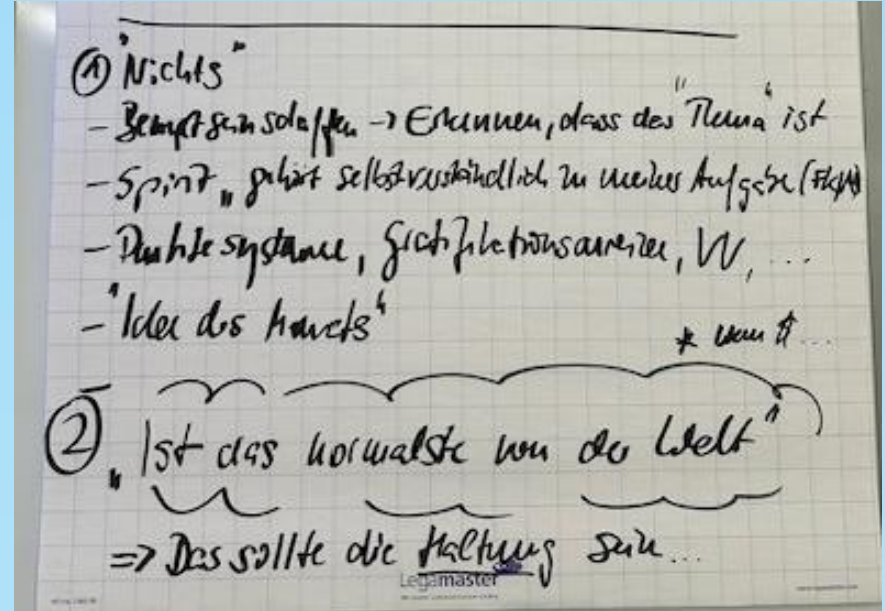 ① "Nichts"
- Bewußtsein schaffen → Erkennen, dass das "Thema" ist
- Spirit „gehört selbstverständlich zu meiner Aufgabe
- Punktesysteme, Gratifikationsanreize, VV, ...
- "Idee des Monats"
* wenn $ ...
② „Ist das normalste von der Welt"
=> Das sollte die Haltung sein...
Legamaster